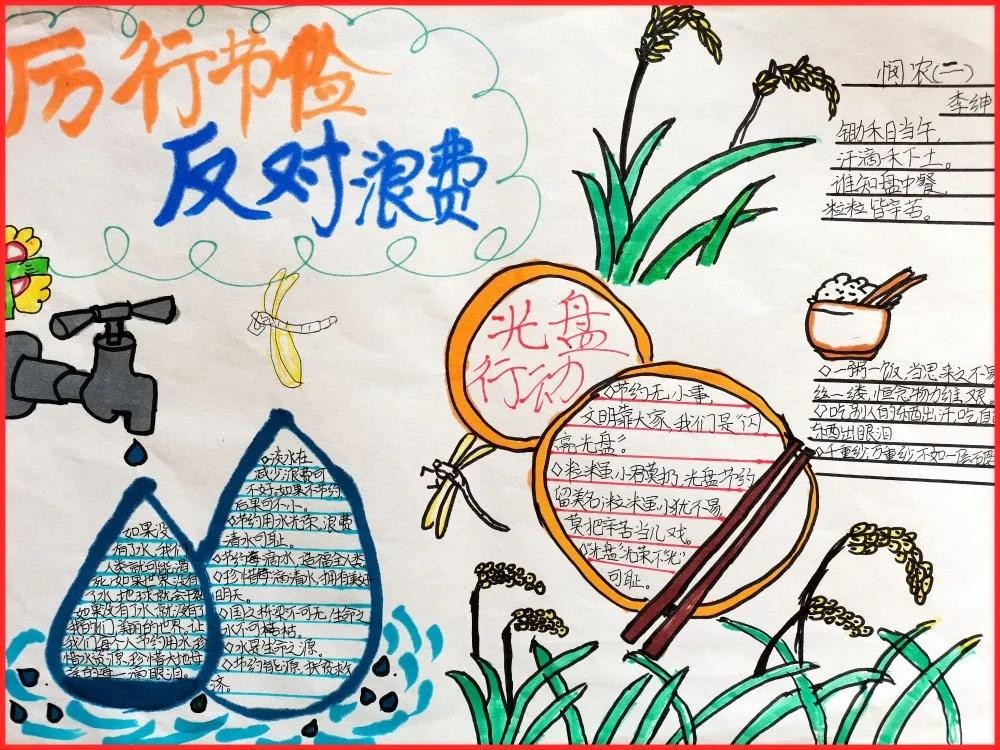 厉行节俭
反对浪费
悯农(二)
李绅
锄禾日当午,
汗滴禾下土。
谁知盘中餐,
粒粒皆辛苦。
光盘
行动
◇节约无小事,
文明靠大家,我们是“闪
亮光盘”
◇粒米虽小君莫扔,光盘节约
留美名;粒米虽小犹不易,
莫把辛苦当儿戏。
◇“光盘”光荣,“不光”
可耻。
◇一粥一饭,当思来之不易
丝一缕,恒念物力维艰。
◇吃别人的东西出汗,吃自
东西出眼泪
◇千重纱,万重纱,不如一层
如果没
有了水,我们
人类就可能渴
死,如果世界没有
了水,地球就会
如果没有了水,就没有了
我们们美丽的世界,让
我们每个人节约用水,珍
惜水资源,珍惜大地母
亲的每一滴眼泪。
◇淡水在
减少,浪费可
不好,如果不节约
后果可不小。
◇节约用水光荣,浪费
清水可耻。
◇节约每滴水,造福全人类
◇珍惜每滴清水,拥有美好
明天。
◇国之桥梁不可无,生命之
水不可横枯。
◇水是生命之源。
◇节约能源
济。